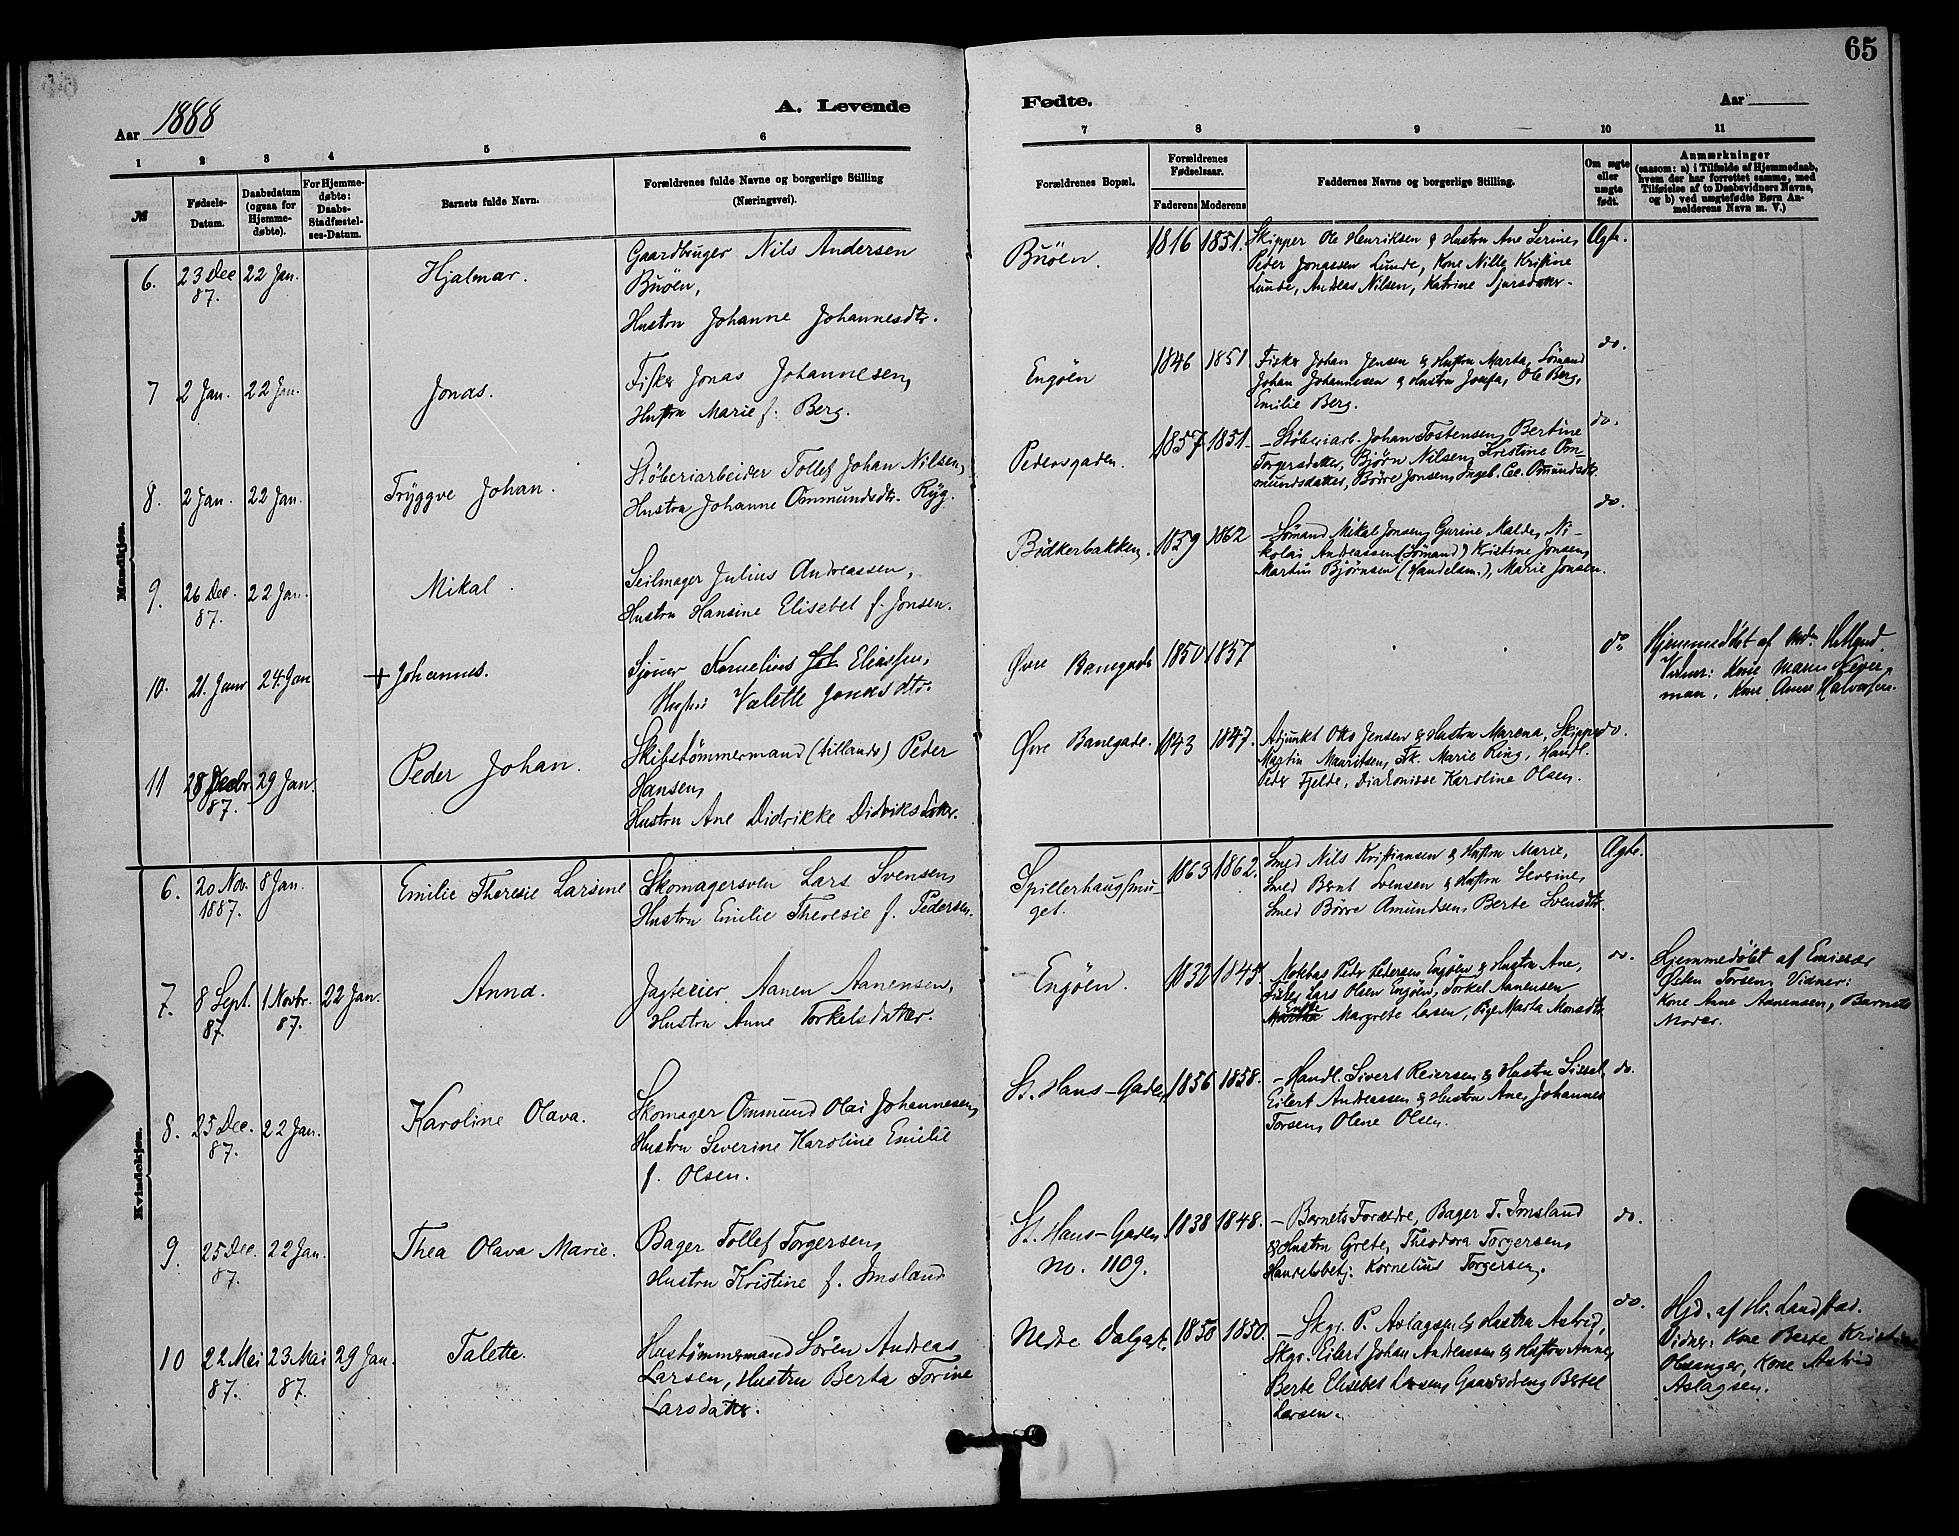 65
Aar 1888
A. Levende
Fødte.
Aar
1 2 3 4 5 6
7 8 9 10 11
№
Fødsels-Datum.
Daabsdatum (ogsaa for Hjemme-døbte).
For Hjemme-døbte: Daabs-Stadfæstel-ses-Datum.
Barnets fulde Navn.
Forældrenes fulde Navne og borgerlige Stilling
(Næringsvei).
Forældrenes Bopæl.
Forældrenes Fødselsaar.
Faderens Moderens
Faddernes Navne og borgerlige Stilling.
Om ægte eller uægte født.
Anmærkninger
(saasom: a) i Tilfælde af Hjemmedaab,
hvem der har forrettet samme, med
Tilføielse af to Daabsvidners Navne,
og b) ved uægtefødte Børn An-
melderens Navn m. V.)
Mandkjøn.
6. 23 Dec 87. 22 Jan. Hjalmar.
Gaardbruger Nils Andersen
Buøen,
Hustru Johanne Johannesdtr.
Buøen. 1816 1851.
Skipper Ole Henriksen & Hustru Ane Serine,
Peder Jonassen Lunde, Kone Nille Kristine
Lunde, Andreas Nilsen, Katrine Sjursdatter.
Ægte.
7 2 Jan. 22 Jan. Jonas.
Fisker Jonas Johannesen,
Hustru Marie f. Berg.
Engøen 1846 1851
Fisker Johan Jensen & Hustru Marta, Sømand
Johan Johannesen & Hustru Josefa, Ole Berg,
Emilie Berg.
do.
8. 2 Jan. 22 Jan. Tryggve Johan.
Støberiarbeider Tollef Johan Nilsen,
Hustru Johanne Ommundsdtr. Ryg.
Pedersgaden. 1857 1851.
– Støberiarb. Johan Tostensen, Bertine
Torgersdatter, Bjørn Nilsen, Kristine Om-
mundsdatter, Børre Jonsen, Ingeb. Ce. Omundsdtr.
do.
9. 26 Dec. 87. 22 Jan. Mikal.
Seilmager Julius Andreassen,
Hustru Hansine Elisebet f. Jonsen.
Bødkerbakken. 1859 1862
– Sømand Mikal Jonsen, Gurine Malde, Ni-
kolai Andreassen (Sømand) Kristine Jonsen,
Martin Bjørnsen (Handelsm.), Marie Jonsen.
do.
10. 21. Janr 24. Jan + Johannes.
Sjøuer Kornelius Eliassen,
Hustru Valette Jonasdtr.
Øvre Banegade 1850 1857
do
Hjemmedøbt af
Vidner: Kone
man, Kone Anne Halvorsen.
11 28 Decbr. 87. 29 Jan. Peder Johan.
Skibstømmermand (tillands) Peder
Hansen,
Hustru Ane Didrikke Didriksdatter.
Øvre Banegade. 1843 1847.
Adjunkt Otto Jensen & Hustru Marena, Skipper
Martin Mauritsen, Frk. Marie Ring, Handl.
Peder Fjelde, Diakonisse Karoline Olsen.
do.
Kvindekjøn.
6. 20 Nov. 1887. 8 Jan. Emilie Theresie Larsine
Skomagersven Lars Svensen,
Hustru Emilie Theresie f. Pedersen.
Spillerhaugsmu-
get. 1863 1862.
Smed Nils Kristiansen & Hustru Marie,
Smed Bernt Svensen & Hustru Severine,
Smed Børre Amundsen, Berte Svensdtr.
Ægte.
7. 8 Sept. 87. 1 Novbr. 87. 22 Jan. Anna.
Jagteeier Aanen Aanensen,
Hustru Anne Torkelsdatter.
Engøen. 1832 1845
Peder Pedersen Engøen & Hustru Ane,
Fisker Lars Olsen Engøen, Torkel Aanensen
Margrete Larsen, Pige Marta Monsdtr.
do.
Hjemmedøbt af Emissær
Østen Torsen, Vidner:
Kone Anne Aanensen, Barnets
Moder.
8. 25 Dec. 87. 22 Jan. Karoline Olava.
Skomager Ommund Olai Johannesen,
Hustru Severine Karoline Emilie
f. Olsen.
St. Hans-Gaden 1856 1858.
– Handl. Sivert Reiersen & Hustru Sissel,
Eilert Andreassen & Hustru Ane, Johannes
Torsen, Olene Olsen.
do.
9. 25 Dec. 87. 22 Jan. Thea Olava Marie.
Bager Tollef Torgersen,
Hustru Kristine f. Imsland
St. Hans-Gaden
No. 1109. 1838 1848.
– Barnets Forældre, Bager T. Imsland
& Hustru Grete, Theodora Torgersen,
Handelsbetj. Kornelius Torgersen.
do.
10 22 Mai 87. 23 Mai 87. 29 Jan. Talette.
Hustømmermand Søren Andreas
Larsen, Hustru Berta Torine
Larsdatter.
Nedre Dalgt. 1850 1850.
– Skgr. P. Aslagsen & Hustru Astrid,
Skgr. Eilert Johan Andreassen & Hustru Anne,
Berte Elisebet Larsen, Gaardsdreng Bertel
Larsen.
do.
Hjd. af Hr. Landstad.
Vidner: Kone Berte Kristine
Kone Astrid
Aslagsen.